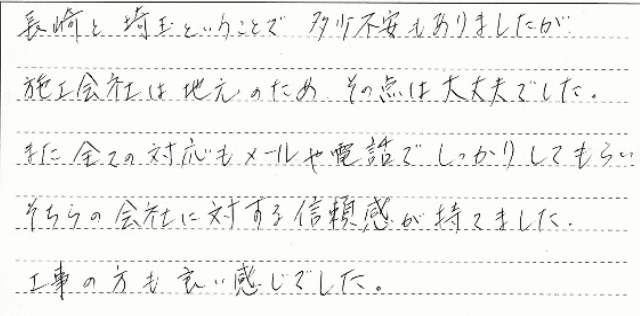 長崎と埼玉ということで 多少不安もありましたが、
施工会社は地元のため その点は大丈夫でした。
また全ての対応もメールや電話でしっかりしてもらい
そちらの会社に対する信頼感が持てました。
工事の方も良い感じでした。